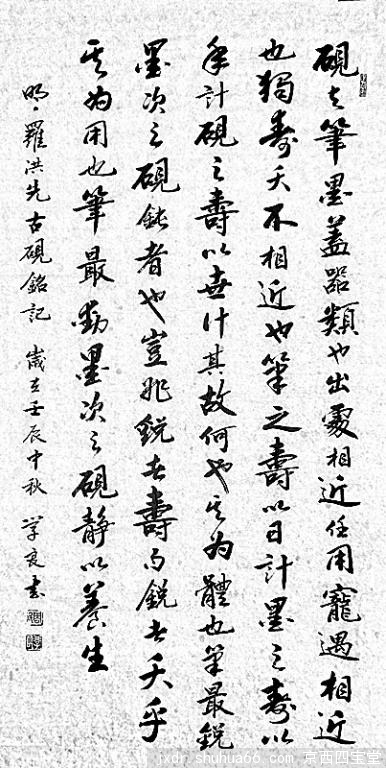 硯与筆墨蓋器類也出處相近任用寵遇相近
也獨壽夭不相近也筆之壽以日計墨之壽以
年計硯之壽以世計其故何也其為體也筆最鋭
墨次之硯鈍者也豈非鋭者壽而鋭者夭乎
其為用也筆最動墨次之硯靜以養生
明·羅洪先古硯銘記 歲在壬辰中秋 学良书
jxdr.shuhua66.com 京西四宝堂